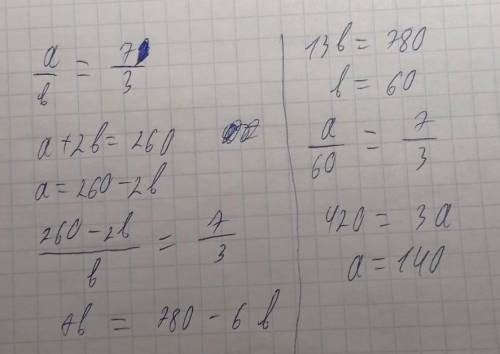 a/b = 7/3
a+2b=260
a=260-2b
(260-2b)/b = 7/3
7b = 780-6b
13b=780
b=60
a/60 = 7/3
420 = 3a
a=140